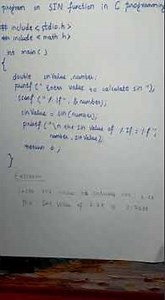 program on SIN function in C programming
# include <stdio.h>
# include <math.h>
int main()
{
double sinValue, number;
printf(" Enter value to calculate sin ");
scanf(" %lf", & number);
sinValue = sin(number);
printf("\n the sin value of %lf = %f",
number, sinValue);
return 0;
}